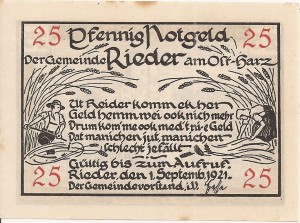 25 Pfennig Notgeld 25
Der Gemeinde Rieder am Ost-Harz
Ut Reider komm ek her
Geld hemm wei ook nich mehr
Drum kom'me ook med't ri-e Geld
Dat manichen jut, manichen
schlecht jefällt
Gültig bis zum Aufruf.
Rieder, den 1. Septemb. 1921.
25 Der Gemeindevorstand, i.V. 25